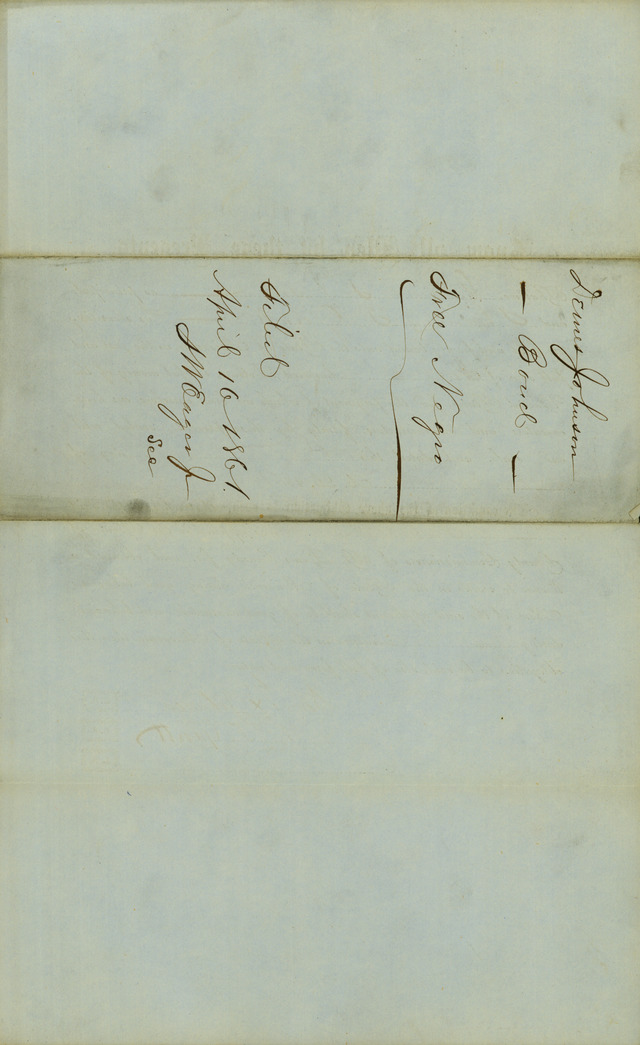 Johnson
— Bond —
Free Negro
Filed
April 16 1861.
J W Eager Jr
Sec